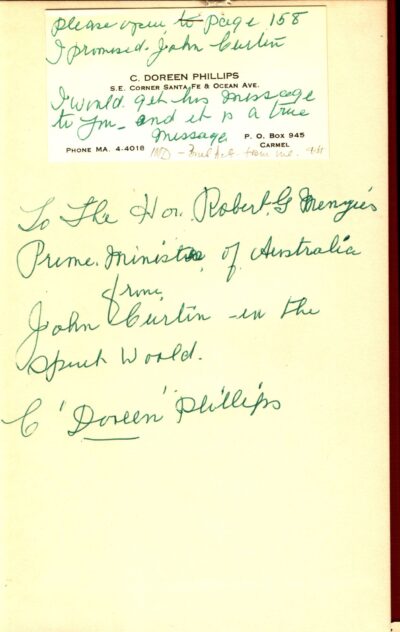 please open to page 158
I promised John Curtin
C. DOREEN PHILLIPS
S.E. CORNER SANTA FE & OCEAN AVE.
I would get his message
to you - and it is a true
message
P. O. BOX 945
CARMEL
PHONE MA. 4-4018
To The Hon. Robert G Menzies
Prime Minister of Australia
from
John Curtin - in the
Spirit World.
C 'Doreen' Phillips